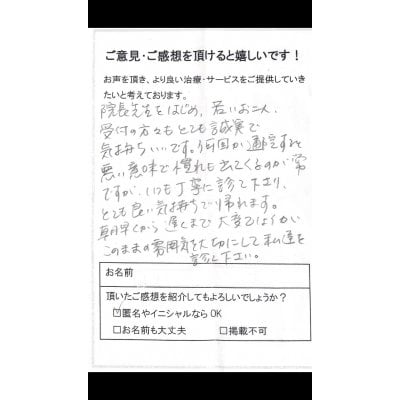 ご意見・ご感想を頂けると嬉しいです！
お声を頂き、より良い治療・サービスをご提供していき
たいと考えております。
院長先生をはじめ、若いお二人、
受付の方々もとても誠実で
気持ちいいです。何回か通院すると
悪い意味で慣れも出てくるのが常
ですが、いつも丁寧に診て下さり、
とても良い気持ちで帰れます。
朝早くから遅くまで大変でしょうが
このままの雰囲気を大切にして私達を
診て下さい。
お名前
頂いたご感想を紹介してもよろしいでしょうか？
☑匿名やイニシャルなら OK
□お名前も大丈夫 □掲載不可